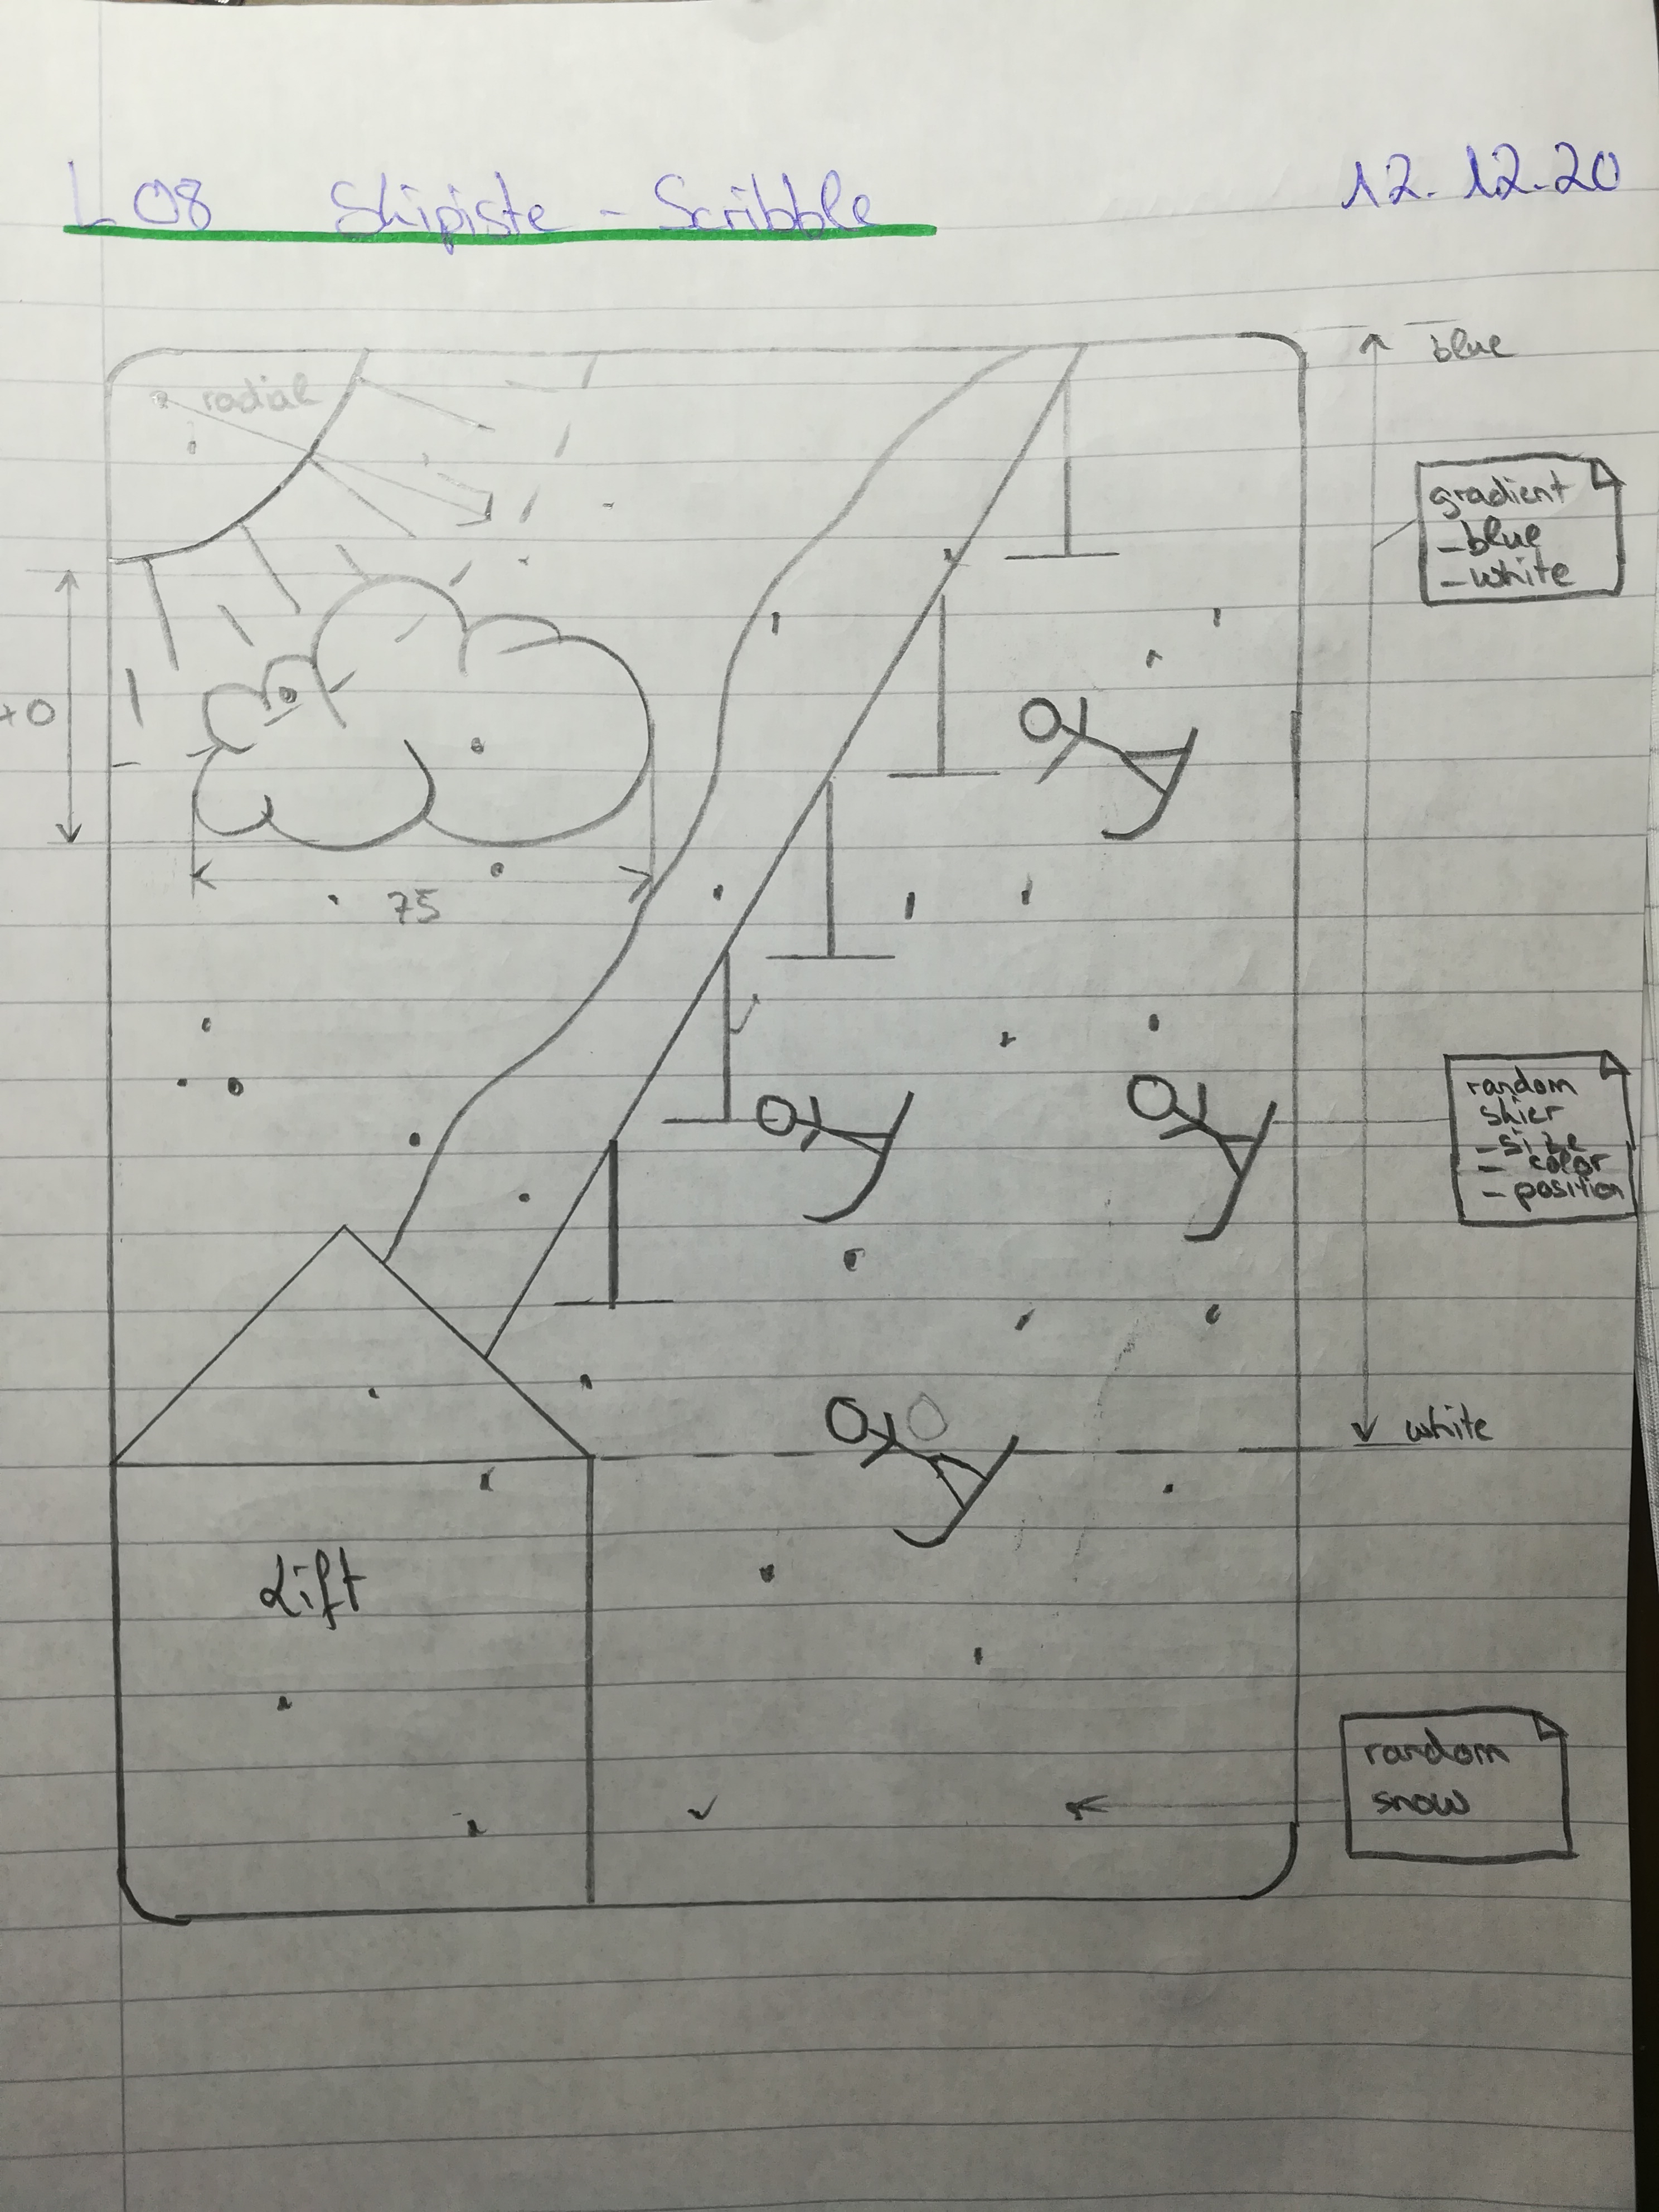 L 08 Skipiste - Scribble
12.12.20
blue
radial
gradient
- blue
- white
75
random
skier
- size
- color
- position
white
Lift
random
snow